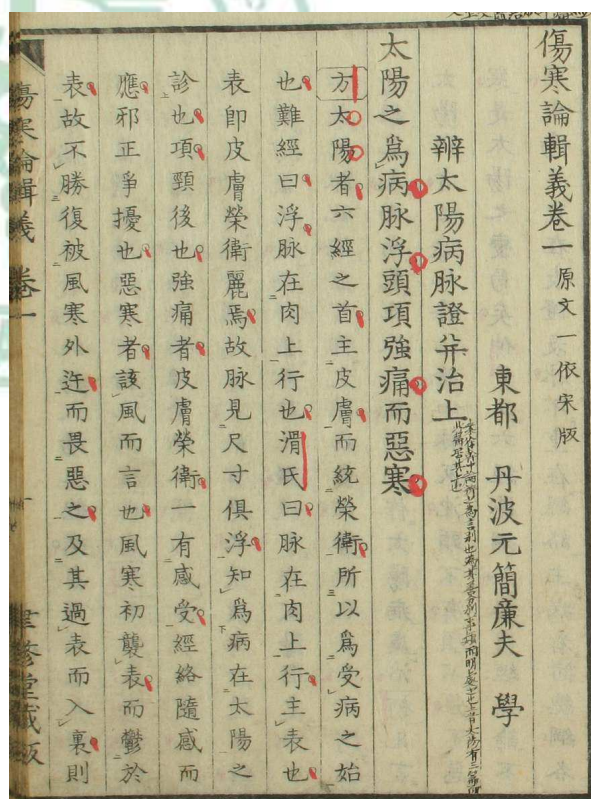 傷寒論輯義卷一 原文一依宋版
東都 丹波元簡廉夫 學
辨太陽病脉證幷治上
太陽之爲病脉浮頭項強痛而惡寒
方太陽者六經之首主皮膚而統榮衛所以爲受病之始
也難經曰浮脉在肉上行也滑氏曰脉在肉上行主表也
表卽皮膚榮衛麗焉故脉見尺寸俱浮知爲病在太陽之
診也項頸後也強痛者皮膚榮衛一有感受經絡隨感而
應邪正爭擾也惡寒者該風而言也風寒初襲表而鬱於
表故不勝復被風寒外迕而畏惡之及其過表而入裏則
傷寒論輯義 卷一
聿修堂藏版